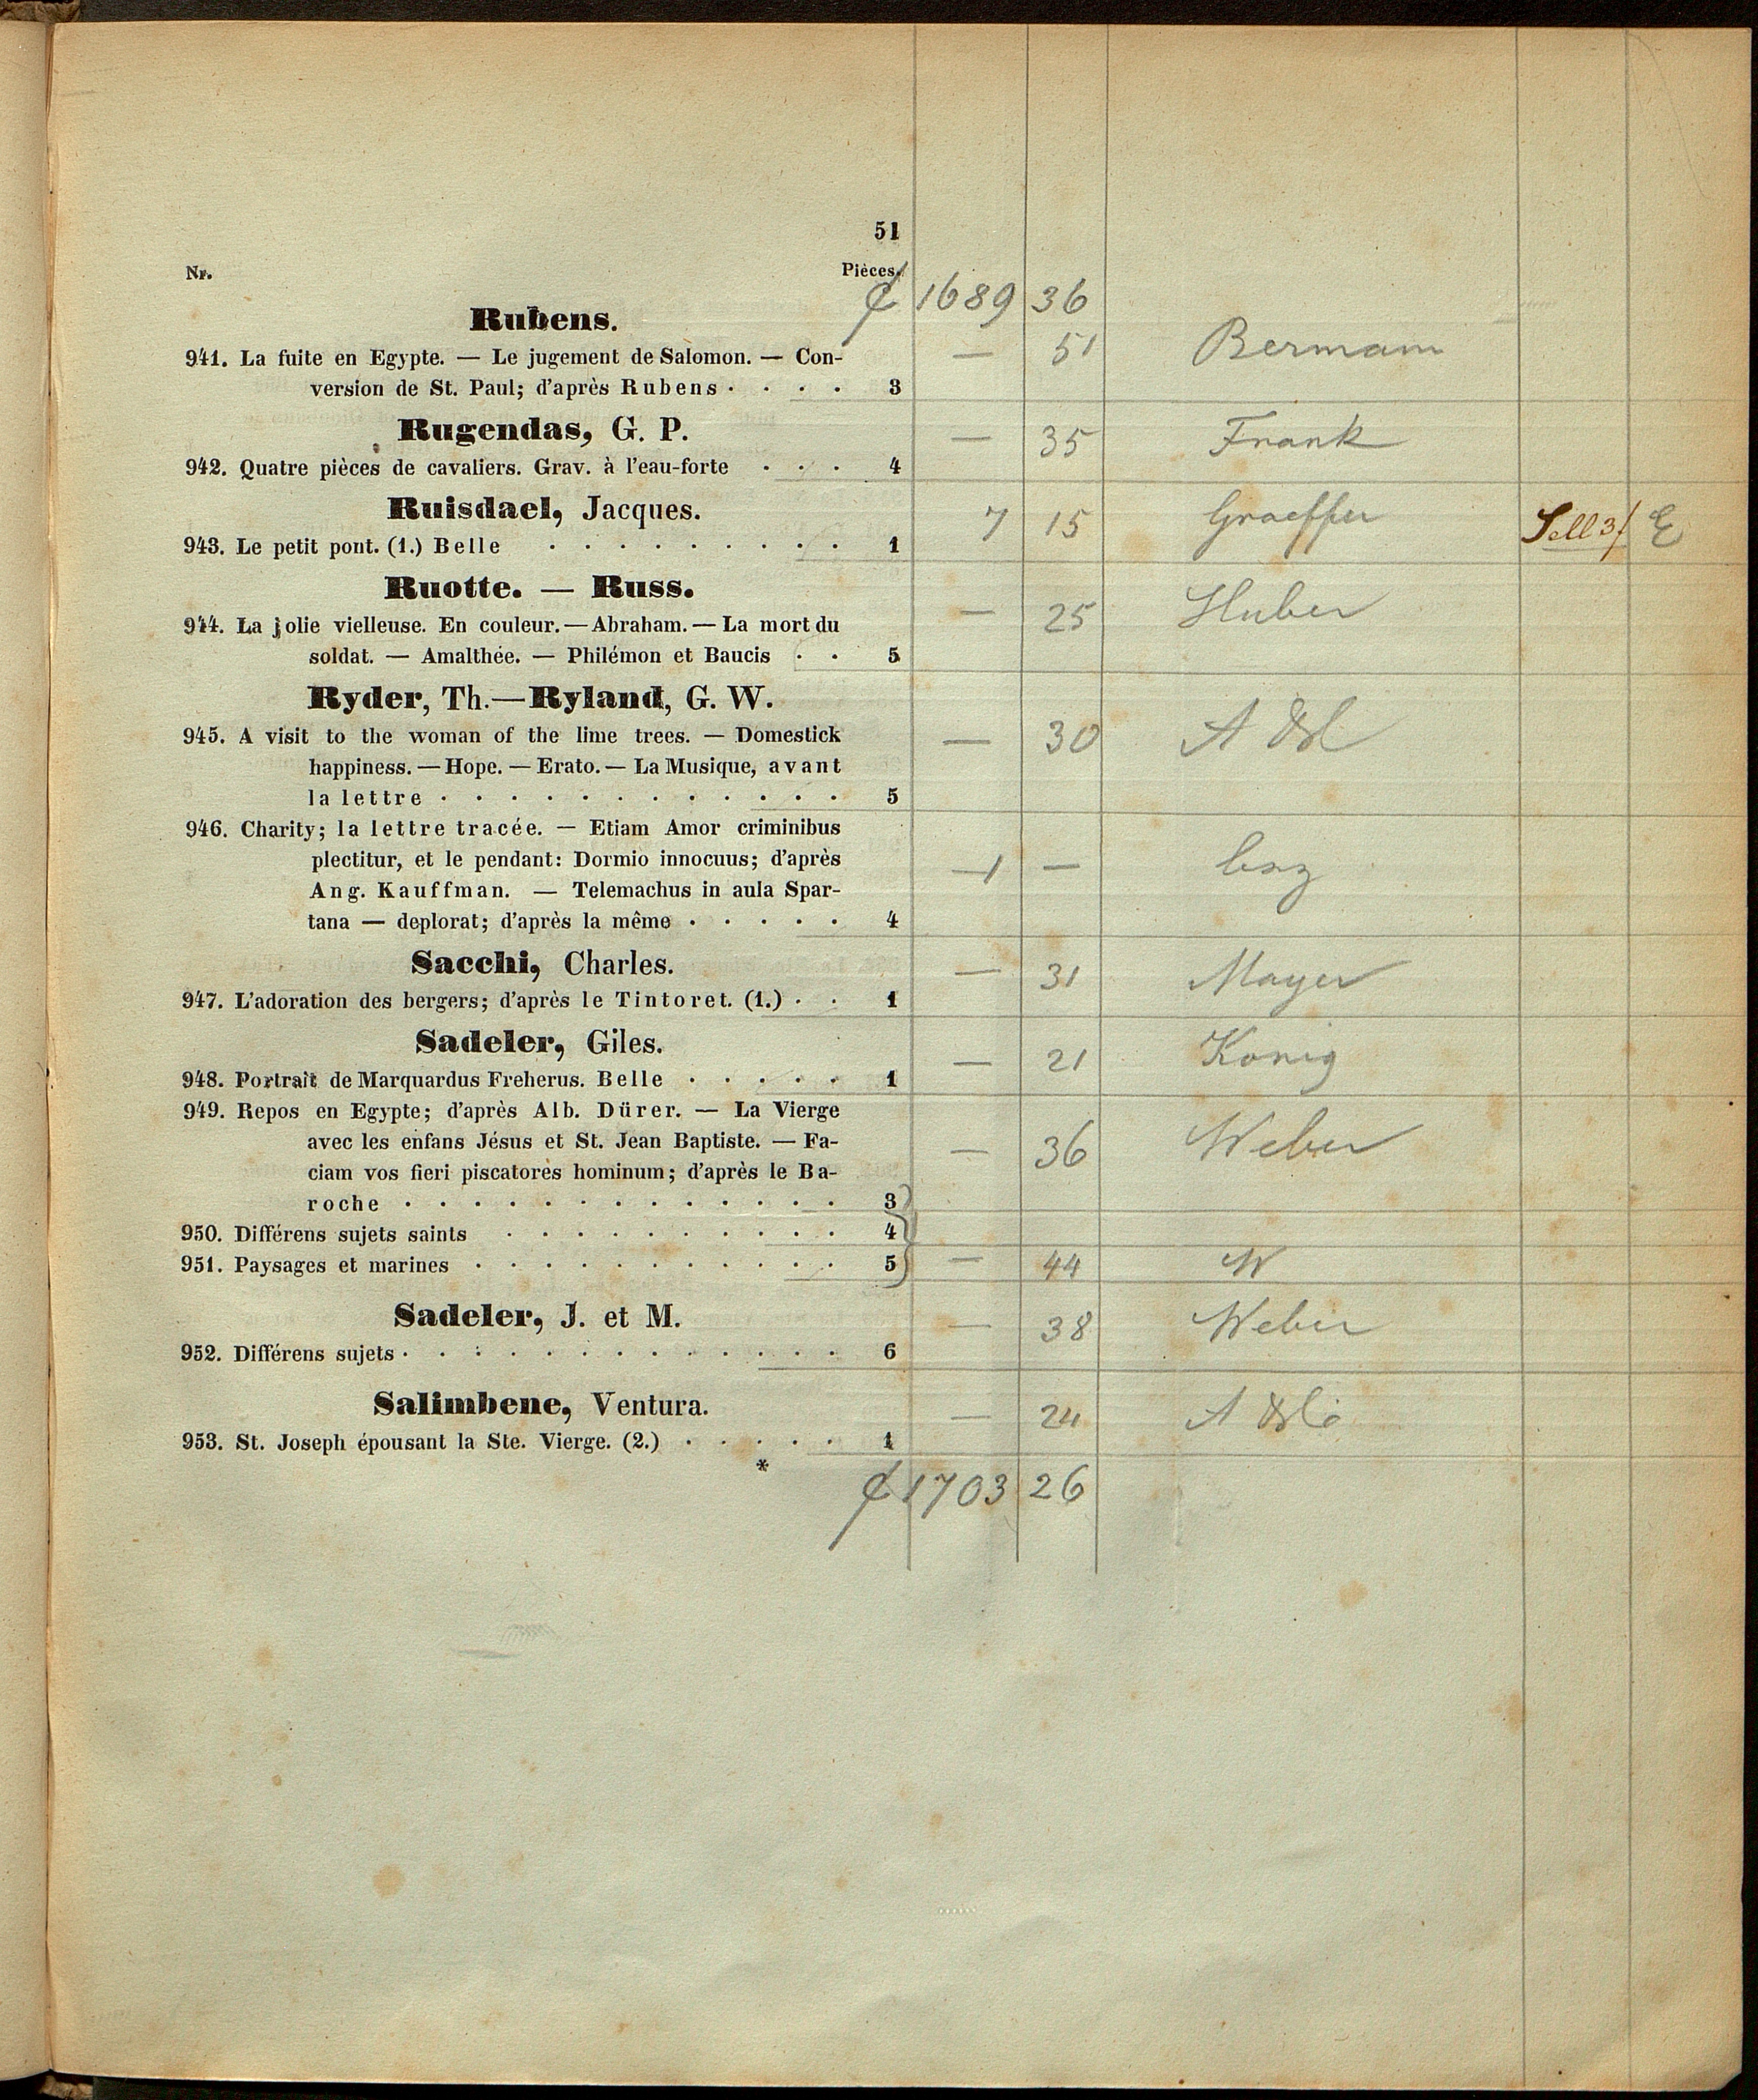 51
Nr. Pièces.
1689 36
Rubens.
941. La fuite en Egypte. — Le jugement de Salomon. — Con- — 51 Bermann
version de St. Paul; d'après Rubens . . . . 3
Rugendas, G. P. — 35 Frank
942. Quatre pièces de cavaliers. Grav. à l'eau-forte . . . 4
Ruisdael, Jacques. 7 15 Graeffer Sell 3/ E
943. Le petit pont. (1.) Belle . . . . . . . . . 1
Ruotte. — Russ. — 25 Huber
944. La jolie vielleuse. En couleur. — Abraham. — La mort du
soldat. — Amalthée. — Philémon et Baucis . . 5
Ryder, Th. — Ryland, G. W.
945. A visit to the woman of the lime trees. — Domestick — 30 A
happiness. — Hope. — Erato. — La Musique, avant
la lettre . . . . . . . . . . . . 5
946. Charity; la lettre tracée. — Etiam Amor criminibus
plectitur, et le pendant: Dormio innocuus; d'après 1 —
Ang. Kauffman. — Telemachus in aula Spar-
tana — deplorat; d'après la même . . . . . 4
Sacchi, Charles. — 31 Mayer
947. L'adoration des bergers; d'après le Tintoret. (1.) . . 1
Sadeler, Giles. — 21 Konig
948. Portrait de Marquardus Freherus. Belle . . . . . 1
949. Repos en Egypte; d'après Alb. Dürer. — La Vierge
avec les enfans Jésus et St. Jean Baptiste. — Fa- — 36 Weber
ciam vos fieri piscatores hominum; d'après le Ba-
roche . . . . . . . . . . . . . 3
950. Différens sujets saints . . . . . . . . . . 4
951. Paysages et marines . . . . . . . . . . . 5 — 44 W
Sadeler, J. et M. — 38 Weber
952. Différens sujets . . . . . . . . . . . . . 6
Salimbene, Ventura. — 24 A
953. St. Joseph épousant la Ste. Vierge. (2.) . . . . . 1
*
1703 26